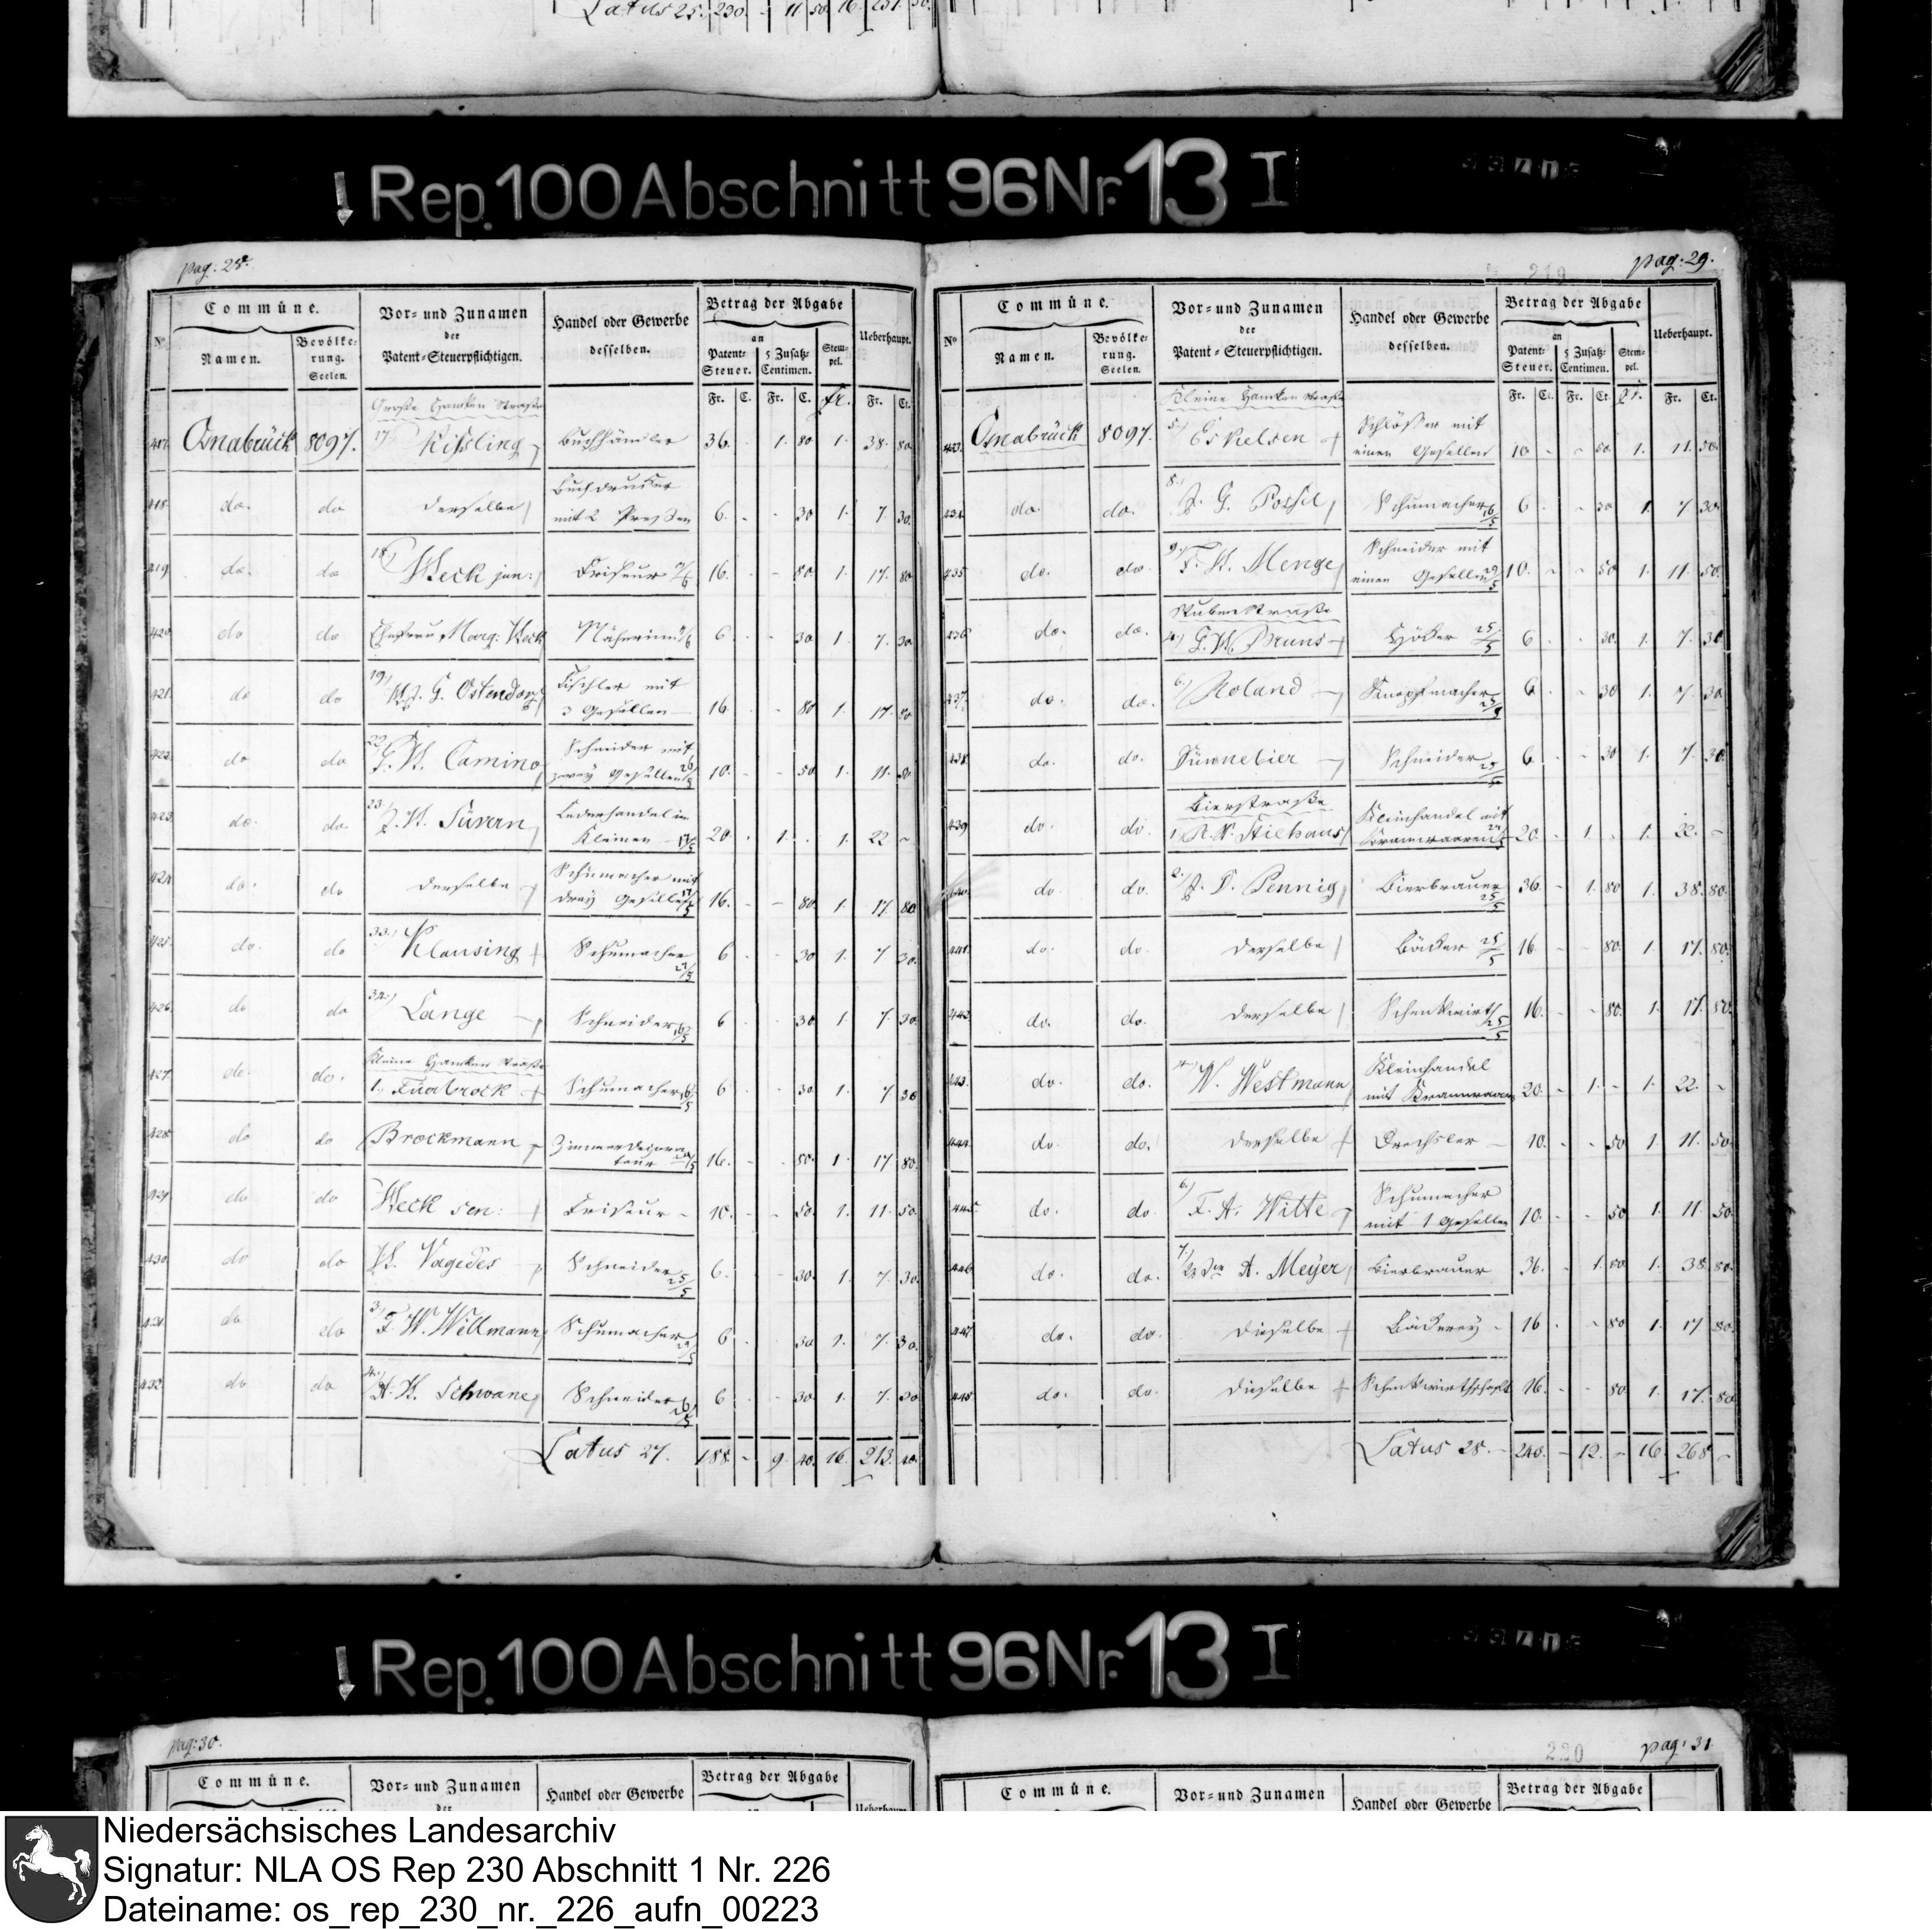 Latus 25. 230. - 11 50. 16. 257. 50.
Rep. 100 Abschnitt 96 Nr. 13 I
pag: 28.
Commüne.
Vor- und Zunamen
der
Patent-Steuerpflichtigen.
Handel oder Gewerbe
desselben.
Betrag der Abgabe
an
Ueberhaupt.
No
Namen.
Bevölke-
rung.
Seelen.
Patent-
Steuer.
5 Zusatz-
Centimen.
Stem-
pel.
Fr. C. Fr. C. Fr. Fr. Ct.
Große Hamken Straße
417. Osnabrück 8097. 17.) Kißling Buchhändler 36. - 1. 80 1. 38. 80
Buchdrucker
418. do. do derselbe mit 2 Preßen 6. - - 30 1. 7. 30.
419. do. do 18.) Weck jun: Friseur 16. - - 80 1. 17. 80
420. do do Ehefrau Marg: Weck Näherinn 6 - - 30 1. 7. 30.
Tischler mit
421. do do 19.) G. Ostendorf 3 Gesellen 16. - - 80 1. 17. 80
Schneider mit
422. do do 22.) G. H. Camino zwey Gesellen 10. - - 50 1. 11. 50
Lederhandel im
423. do. do. 23.) J. H. Süvern Kleinen 20. - 1. - 1. 22 -
Schumacher mit
424. do. do derselbe drey Gesellen 16. - - 80 1. 17. 80.
425. do. do 33.) Klausing Schumacher 6 - - 30 1. 7 30.
426. do do 34.) Lange Schneider 6 - - 30 1. 7. 30.
Kleine Hamken Straße
427. do. do. 1. Schumacher 6 - - 30 1. 7 30
428. do do Brockmann Zimmer Decora
teur 16. - - 80. 1 17 80.
429. do do Weck sen: Friseur 10. - - 50. 1. 11. 50.
430. do do H. Vagedes Schneider 6. - - 30. 1. 7. 30
431. do do 3.) F. W. Wellmann Schumacher 6 - - 30 1. 7. 30.
432. do do 4.) A. H. Schwane Schneider 6 - - 30 1. 7. 30
Latus 27. 188. - 9. 40. 16. 213. 40.
pag: 29.
219
Commüne.
Vor- und Zunamen
der
Patent-Steuerpflichtigen.
Handel oder Gewerbe
desselben.
Betrag der Abgabe
an
Ueberhaupt.
No
Namen.
Bevölke-
rung.
Seelen.
Patent-
Steuer.
5 Zusatz-
Centimen.
Stem-
pel.
Fr. Ct. Fr. Ct. Fr. Fr. Ct.
Kleine Hamken Straße
Schlößer mit
433. Osnabrück 8097. 5.) Eskelsen einen Gesellen 10 - - 50. 1. 11. 50.
434. do. do. 8.) J. G. Possel Schumacher 6 - - 30 1. 7 30.
Schneider mit
435. do. do. 9.) F. H. Menge einen Gesellen 10. - - 50 1. 11. 50.
436. do. do. G. W. Bruns Höker 25/5 6 - - 30. 1. 7. 30
437. do. do. 6.) Roland Knopfmacher 6 - - 30 1. 7. 30
438. do. do. Sünnebier Schneider 6 - - 30 1. 7. 30.
Bierstraße
Kleinhandel mit
439 do. do. 1. Stiehaus Kramwaaren 20. - 1. - 1. 22. -
440. do. do. 2.) J. D. Pennig Bierbrauer 25/5 36. - 1. 80 1. 38. 80.
441. do. do. derselbe Bäcker 25/5 16 - - 80. 1. 17. 80.
442. do. do. derselbe Schenkwirth 25/5 16. - - 80. 1. 17. 80.
Kleinhandel
443. do. do. W. Westmann mit Kramwaaren 20. - 1. - 1. 22. -
444. do. do. derselbe Drechsler 10. - - 50 1. 11. 50.
Schumacher
445. do. do. 6.) F. A. Witte mit 1 Gesellen 10. - - 50 1. 11. 50
446. do. do. 7.) A. Meyer Bierbrauer 36. - 1. 80 1. 38. 80.
447. do. do. dieselbe Bäckerey 16 - - 80 1. 17 80.
448. do. do. dieselbe Schenkwirthschaft 16. - - 80. 1. 17. 80
Latus 28. 240. - 12. - 16 268 -
Rep. 100 Abschnitt 96 Nr. 13 I
pag: 30.
Commüne.
Vor- und Zunamen
der
Handel oder Gewerbe
Betrag der Abgabe
220
pag: 31
Commüne.
Vor- und Zunamen
Handel oder Gewerbe
Betrag der Abgabe
Niedersächsisches Landesarchiv
Signatur: NLA OS Rep 230 Abschnitt 1 Nr. 226
Dateiname: os_rep_230_nr._226_aufn_00223